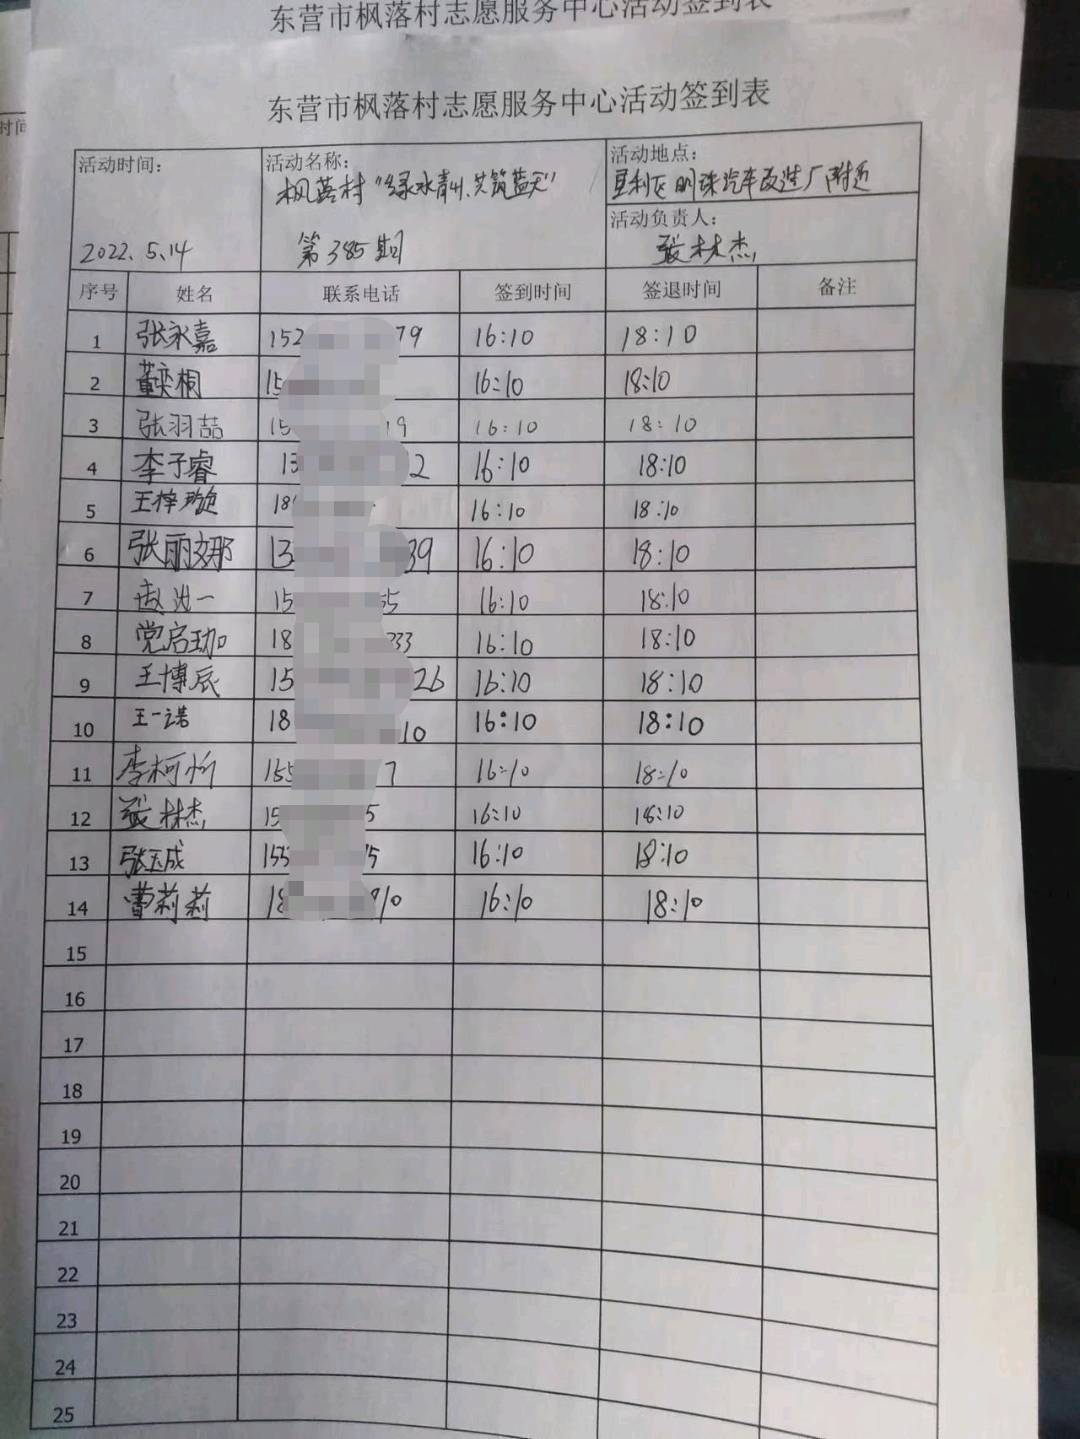 东营市枫落村志愿服务中心活动签到表
时间
东营市枫落村志愿服务中心活动签到表
活动时间: 活动名称: 活动地点:
枫落村“绿水青山、共筑蓝天” 垦利区明珠汽车改造厂附近
活动负责人:
2022.5.14 第385期 张林杰
序号 姓名 联系电话 签到时间 签退时间 备注
1 张永嘉 152 79 16:10 18:10
2 董奕桐 15 16:10 18:10
3 张羽喆 15 19 16:10 18:10
4 李子睿 13 2 16:10 18:10
5 王梓璇 18 16:10 18:10
6 张丽娜 13 39 16:10 18:10
7 赵 一 15 55 16:10 18:10
8 党启珈 18 33 16:10 18:10
9 王博辰 15 26 16:10 18:10
10 王一诺 18 10 16:10 18:10
11 李柯昕 155 7 16:10 18:10
12 张林杰 15 5 16:10 18:10
13 张玉成 155 75 16:10 18:10
14 曹莉莉 18 910 16:10 18:10
15
16
17
18
19
20
21
22
23
24
25